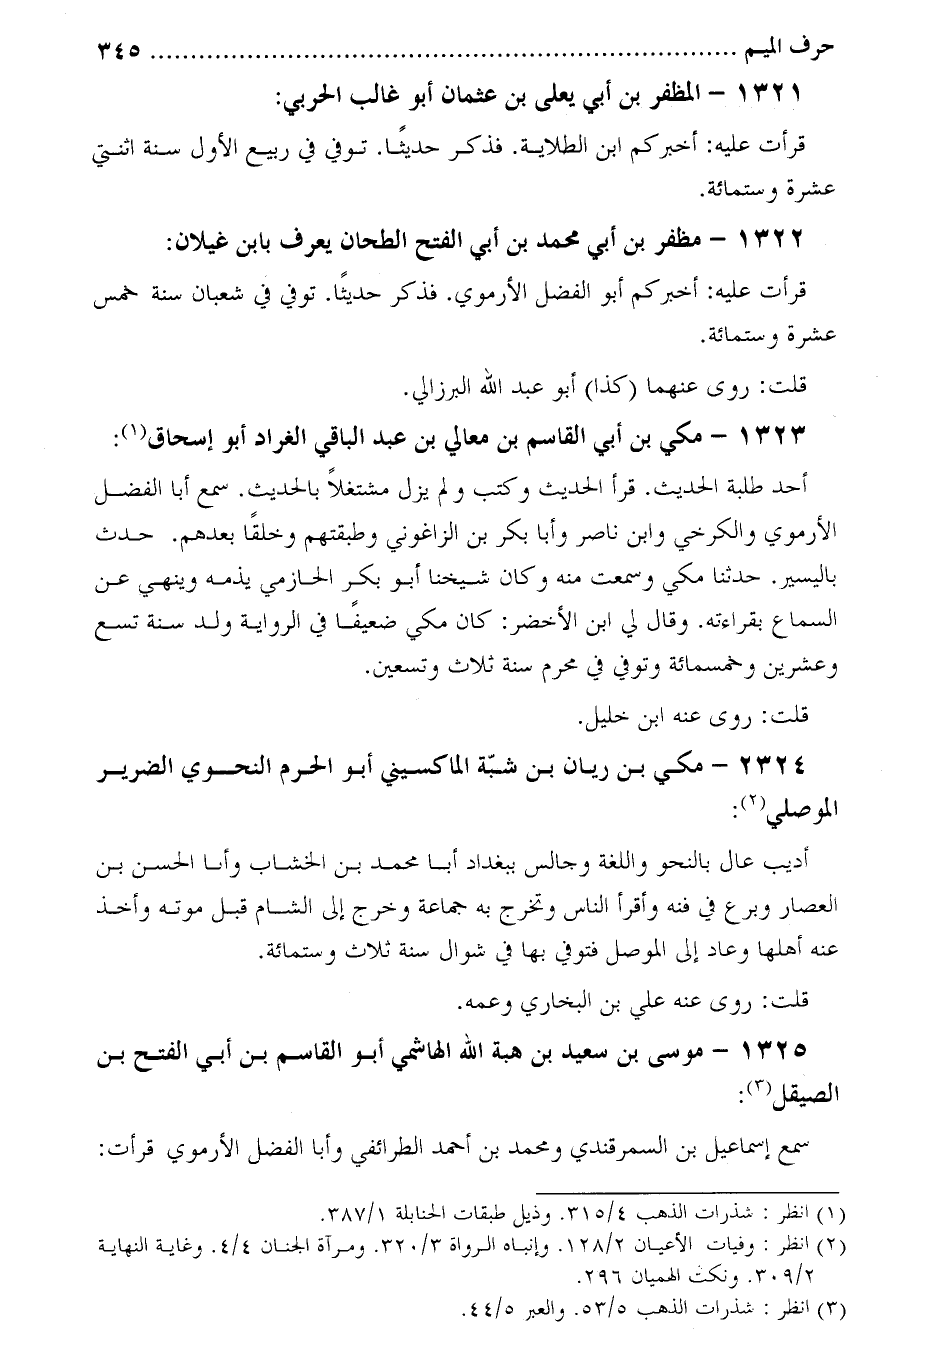 حرف الميم ........................................................................ ٣٤٥
١٣٢١ – المظفر بن أبي يعلى بن عثمان أبو غالب الحربي:
قرأت عليه: أخبركم ابن الطلاية. فذكر حديثًا. توفي في ربيع الأول سنة اثنتي
عشرة وستمائة.
١٣٢٢ – مظفر بن أبي محمد بن أبي الفتح الطحان يعرف بابن غيلان:
قرأت عليه: أخبركم أبو الفضل الأرموي. فذكر حديثًا. توفي في شعبان سنة خمس
عشرة وستمائة.
قلت: روى عنهما (كذا) أبو عبد الله البرزالي.
١٣٢٣ – مكي بن أبي القاسم بن معالي بن عبد الباقي الغراد أبو إسحاق(١):
أحد طلبة الحديث. قرأ الحديث وكتب ولم يزل مشتغلاً بالحديث. سمع أبا الفضل
الأرموي والكرخي وابن ناصر وأبا بكر بن الزاغوني وطبقتهم وخلقًا بعدهم. حدث
باليسير. حدثنا مكي وسمعت منه وكان شيخنا أبو بكر الحازمي يذمه وينهي عن
السماع بقراءته. وقال لي ابن الأخضر: كان مكي ضعيفًا في الرواية ولد سنة تسع
وعشرين وخمسمائة وتوفي في محرم سنة ثلاث وتسعين.
قلت: روى عنه ابن خليل.
٢٣٢٤ – مكي بن ريان بن شبّة الماكسيني أبو الحرم النحوي الضرير
الموصلي(٢):
أديب عال بالنحو واللغة وجالس ببغداد أبا محمد بن الخشاب وأبا الحسن بن
العصار وبرع في فنه وأقرأ الناس وتخرج به جماعة وخرج إلى الشام قبل موته وأخذ
عنه أهلها وعاد إلى الموصل فتوفي بها في شوال سنة ثلاث وستمائة.
قلت: روى عنه علي بن البخاري وعمه.
١٣٢٥ – موسى بن سعيد بن هبة الله الهاشمي أبو القاسم بن أبي الفتح بن
الصيقل(٣):
سمع إسماعيل بن السمرقندي ومحمد بن أحمد الطرائفي وأبا الفضل الأرموي قرأت:
(١) انظر : شذرات الذهب ٣١٥/٤. وذيل طبقات الحنابلة ٣٨٧/١.
(٢) انظر : وفيات الأعيان ١٢٨/٢. وإنباه الرواة ٣٢٠/٣. ومرآة الجنان ٤/٤. وغاية النهاية
٣٠٩/٢. ونكت الهميان ٢٩٦.
(٣) انظر : شذرات الذهب ٥٣/٥. والعبر ٤٤/٥.